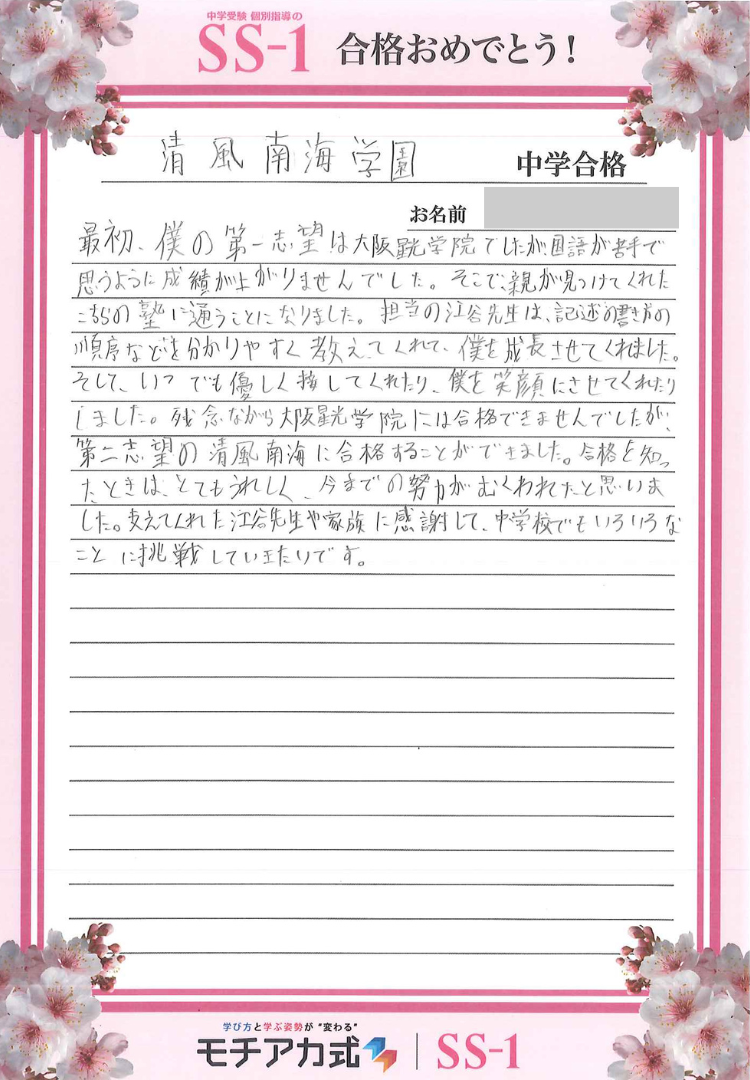 中学受験 個別指導の
SS-1 合格おめでとう!
清風南海学園 中学合格
お名前
最初、僕の第一志望は大阪星光学院でしたが国語が苦手で
思うように成績が上がりませんでした。そこで、親が見つけてくれた
こちらの塾に通うことになりました。担当の江谷先生は、記述の書き方の
順序などを分かりやすく教えてくれて、僕を成長させてくれました。
そして、いつでも優しく接してくれたり、僕を笑顔にさせてくれたり
しました。残念ながら大阪星光学院には合格できませんでしたが、
第二志望の清風南海に合格することができました。合格を知っ
たときは、とてもうれしく、今までの努力がむくわれたと思いま
した。支えてくれた江谷先生や家族に感謝して、中学校でもいろいろな
ことに挑戦していきたいです。
学び方と学ぶ姿勢が“変わる”
モチアカ式 SS-1